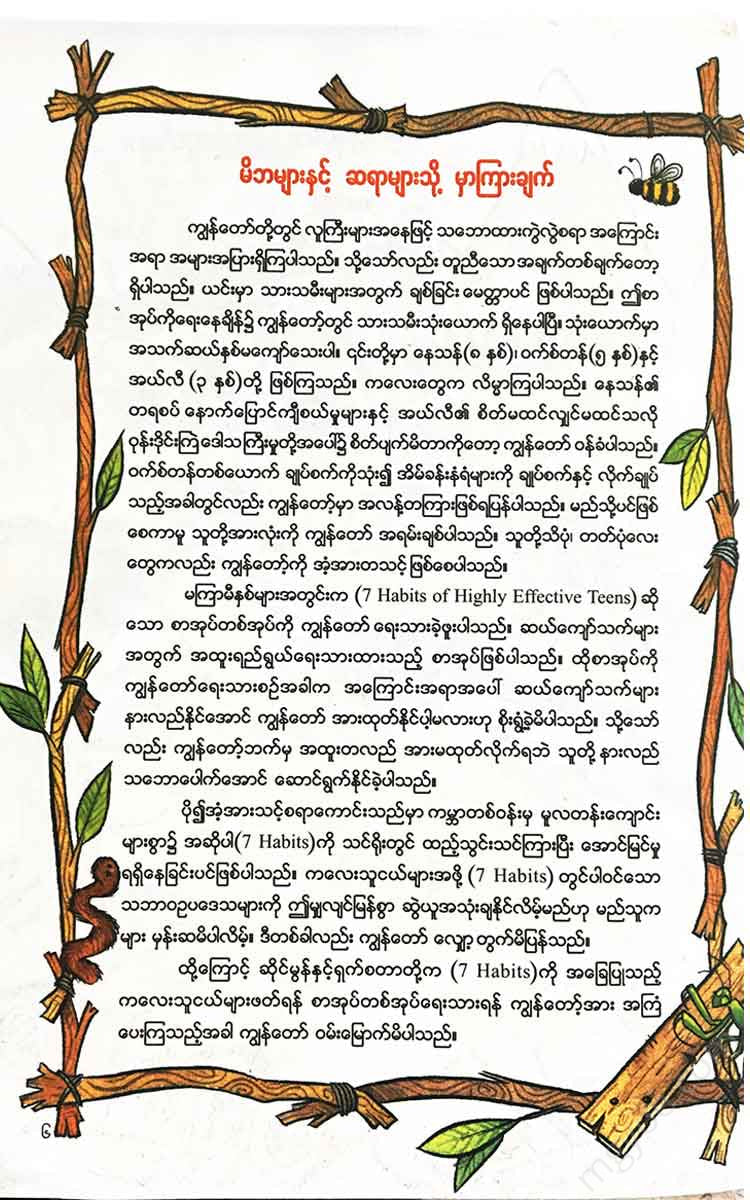 မိဘများနှင့် ဆရာများသို့ မှာကြားချက်
ကျွန်တော်တို့တွင် လူကြီးများအနေဖြင့် သဘောထားကွဲလွဲစရာ အကြောင်း
အရာ အများအပြားရှိကြပါသည်။ သို့သော်လည်း တူညီသော အချက်တစ်ချက်တော့
ရှိပါသည်။ ယင်းမှာ သားသမီးများအတွက် ချစ်ခြင်း မေတ္တာပင် ဖြစ်ပါသည်။ ဤစာ
အုပ်ကိုရေးနေချိန်၌ ကျွန်တော့်တွင် သားသမီးသုံးယောက် ရှိနေပါပြီ။ သုံးယောက်မှာ
အသက်ဆယ်နှစ်မကျော်သေးပါ။ ၎င်းတို့မှာ နေသန်(၈ နှစ်)၊ ဝက်စ်တန်(၅ နှစ်)နှင့်
အယ်လီ (၃ နှစ်)တို့ ဖြစ်ကြသည်။ ကလေးတွေက လိမ္မာကြပါသည်။ နေသန်၏
တရစပ် နောက်ပြောင်ကျီစယ်မှုများနှင့် အယ်လီ၏ စိတ်မထင်လျှင်မထင်သလို
ဝုန်းဒိုင်းကြဲဒေါသကြီးမှုတို့အပေါ်၌ စိတ်ပျက်မိတာကိုတော့ ကျွန်တော် ဝန်ခံပါသည်။
ဝက်စ်တန်တစ်ယောက် ချုပ်စက်ကိုသုံး၍ အိမ်ခန်းနံရံများကို ချုပ်စက်နှင့် လိုက်ချုပ်
သည့်အခါတွင်လည်း ကျွန်တော့်မှာ အလန့်တကြားဖြစ်ရပြန်ပါသည်။ မည်သို့ပင်ဖြစ်
စေကာမူ သူတို့အားလုံးကို ကျွန်တော် အရမ်းချစ်ပါသည်။ သူတို့သိပုံ၊ တတ်ပုံလေး
တွေကလည်း ကျွန်တော့်ကို အံ့အားတသင့်ဖြစ်စေပါသည်။
မကြာမီနှစ်များအတွင်းက (7 Habits of Highly Effective Teens) ဆို
သော စာအုပ်တစ်အုပ်ကို ကျွန်တော် ရေးသားခဲ့ဖူးပါသည်။ ဆယ်ကျော်သက်များ
အတွက် အထူးရည်ရွယ်ရေးသားထားသည့် စာအုပ်ဖြစ်ပါသည်။ ထိုစာအုပ်ကို
ကျွန်တော်ရေးသားစဉ်အခါက အကြောင်းအရာအပေါ် ဆယ်ကျော်သက်များ
နားလည်နိုင်အောင် ကျွန်တော် အားထုတ်နိုင်ပါ့မလားဟု စိုးရွံ့ခဲ့မိပါသည်။ သို့သော်
လည်း ကျွန်တော့်ဘက်မှ အထူးတလည် အားမထုတ်လိုက်ရဘဲ သူတို့ နားလည်
သဘောပေါက်အောင် ဆောင်ရွက်နိုင်ခဲ့ပါသည်။
ပို၍အံ့အားသင့်စရာကောင်းသည်မှာ ကမ္ဘာတစ်ဝန်းမှ မူလတန်းကျောင်း
များစွာ၌ အဆိုပါ(7 Habits)ကို သင်ရိုးတွင် ထည့်သွင်းသင်ကြားပြီး အောင်မြင်မှု
ရရှိနေခြင်းပင်ဖြစ်ပါသည်။ ကလေးသူငယ်များအဖို့ (7 Habits) တွင်ပါဝင်သော
သဘာဝဥပဒေသများကို ဤမျှလျင်မြန်စွာ ဆွဲယူအသုံးချနိုင်လိမ့်မည်ဟု မည်သူက
များ မှန်းဆမိပါလိမ့်။ ဒီတစ်ခါလည်း ကျွန်တော် လျှော့တွက်မိပြန်သည်။
ထို့ကြောင့် ဆိုင်မွန်နှင့်ရှက်စတာတို့က (7 Habits)ကို အခြေပြုသည့်
ကလေးသူငယ်များဖတ်ရန် စာအုပ်တစ်အုပ်ရေးသားရန် ကျွန်တော့်အား အကြံ
ပေးကြသည့်အခါ ကျွန်တော် ဝမ်းမြောက်မိပါသည်။
၆